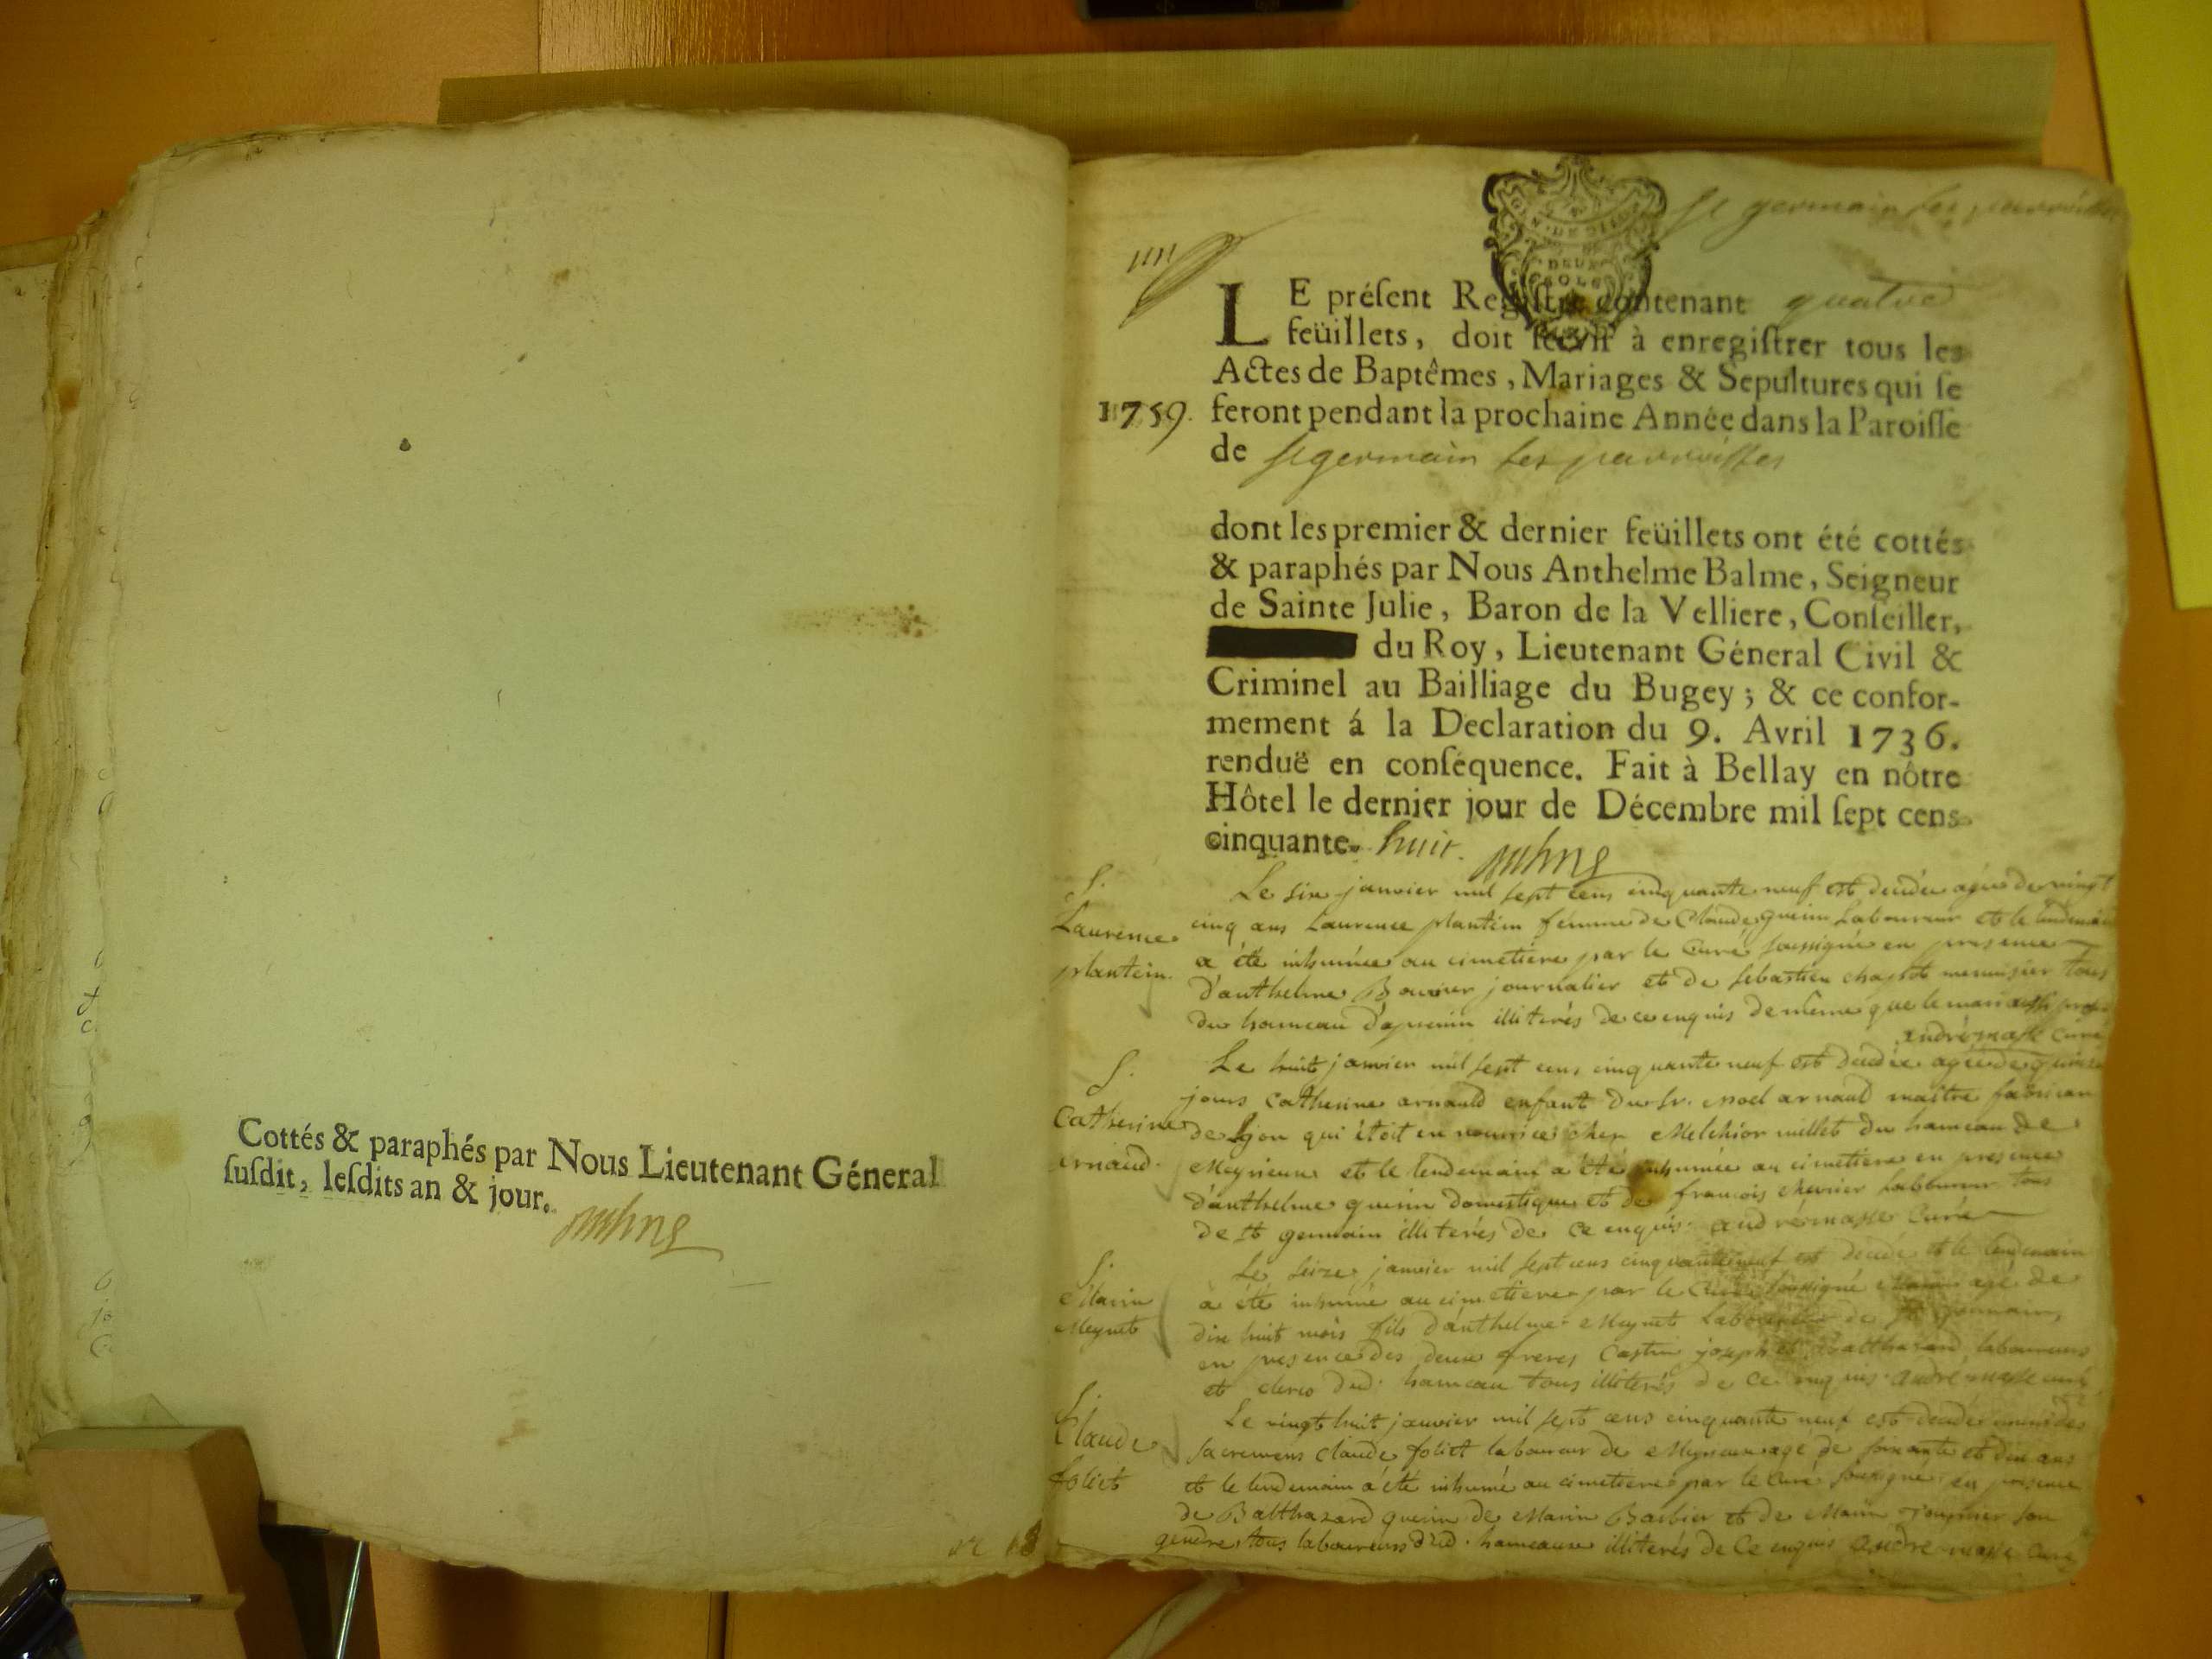 Cottés & paraphés par Nous Lieutenant Géneral
ſuſdit, leſdits an & jour.
St germain les parroisses
DEUX
SOLS
LE préſent Regiſtre contenant quatre
feüillets, doit ſervir à enregiſtrer tous les
Actes de Baptêmes, Mariages & Sepultures qui ſe
1759. feront pendant la prochaine Année dans la Paroiſſe
de St germain les parroisses
dont les premier & dernier feüillets ont été cottés
& paraphés par Nous Anthelme Balme, Seigneur
de Sainte Julie, Baron de la Velliere, Conſeiller,
du Roy, Lieutenant Géneral Civil &
Criminel au Bailliage du Bugey; & ce confor-
mement á la Declaration du 9. Avril 1736.
renduë en conſéquence. Fait à Bellay en nôtre
Hôtel le dernier jour de Décembre mil ſept cens
cinquante-huit.
S.
Laurence
plantin.
Le six janvier mil sept cens cinquante neuf est decedée agée de vingt
cinq ans Laurence plantin femme de Claude guerin Laboureur et le lendemain
a été inhumée au cimetiere par le Curé soussigné en presence
d'anthelme Bouvier journalier et de sebastien chapot menuisier tous
du hameau d'apremin illiterés de ce enquis de meme que le mari aussi
andré masse curé
S.
Catherine
arnaud.
Le huit janvier mil sept cens cinquante neuf est decedée agée de quinze
jours Catherine arnauld enfant du sr. noel arnaud maitre fabrican
de Lyon qui étoit en nourrice chez Melchior millet du hameau de
Meyrieux et le lendemain a été inhumée au cimetiere en presence
d'anthelme guerin domestique et de francois chevrier labboureur tous
de st germain illiterés de ce enquis. andré masse Curé
S.
Marin
Meynet
Le seize janvier mil sept cens cinquante neuf est decedé et le lendemain
a été inhumé au cimetiere par le Curé soussigné Marin agé de
dix huit mois fils d'anthelme Meynet Laboureur de st germain,
en presence des deux freres Castin joseph et Balthazard laboureurs
et clerc dud. hameau tous illiterés de ce enquis. andré masse curé
S.
Claude
foliet
Le vingt huit janvier mil sept cens cinquante neuf est decedé muni des
sacremens claude foliet laboureur de Meyrieux agé de soixante et dix ans
et le lendemain a été inhumé au cimetiere par le Curé soussigné en presence
de Balthazard guerin de Marin Barbier et de Marin Tournier son
gendre, tous laboureurs dud. hameaux illiterés de ce enquis andré masse Curé